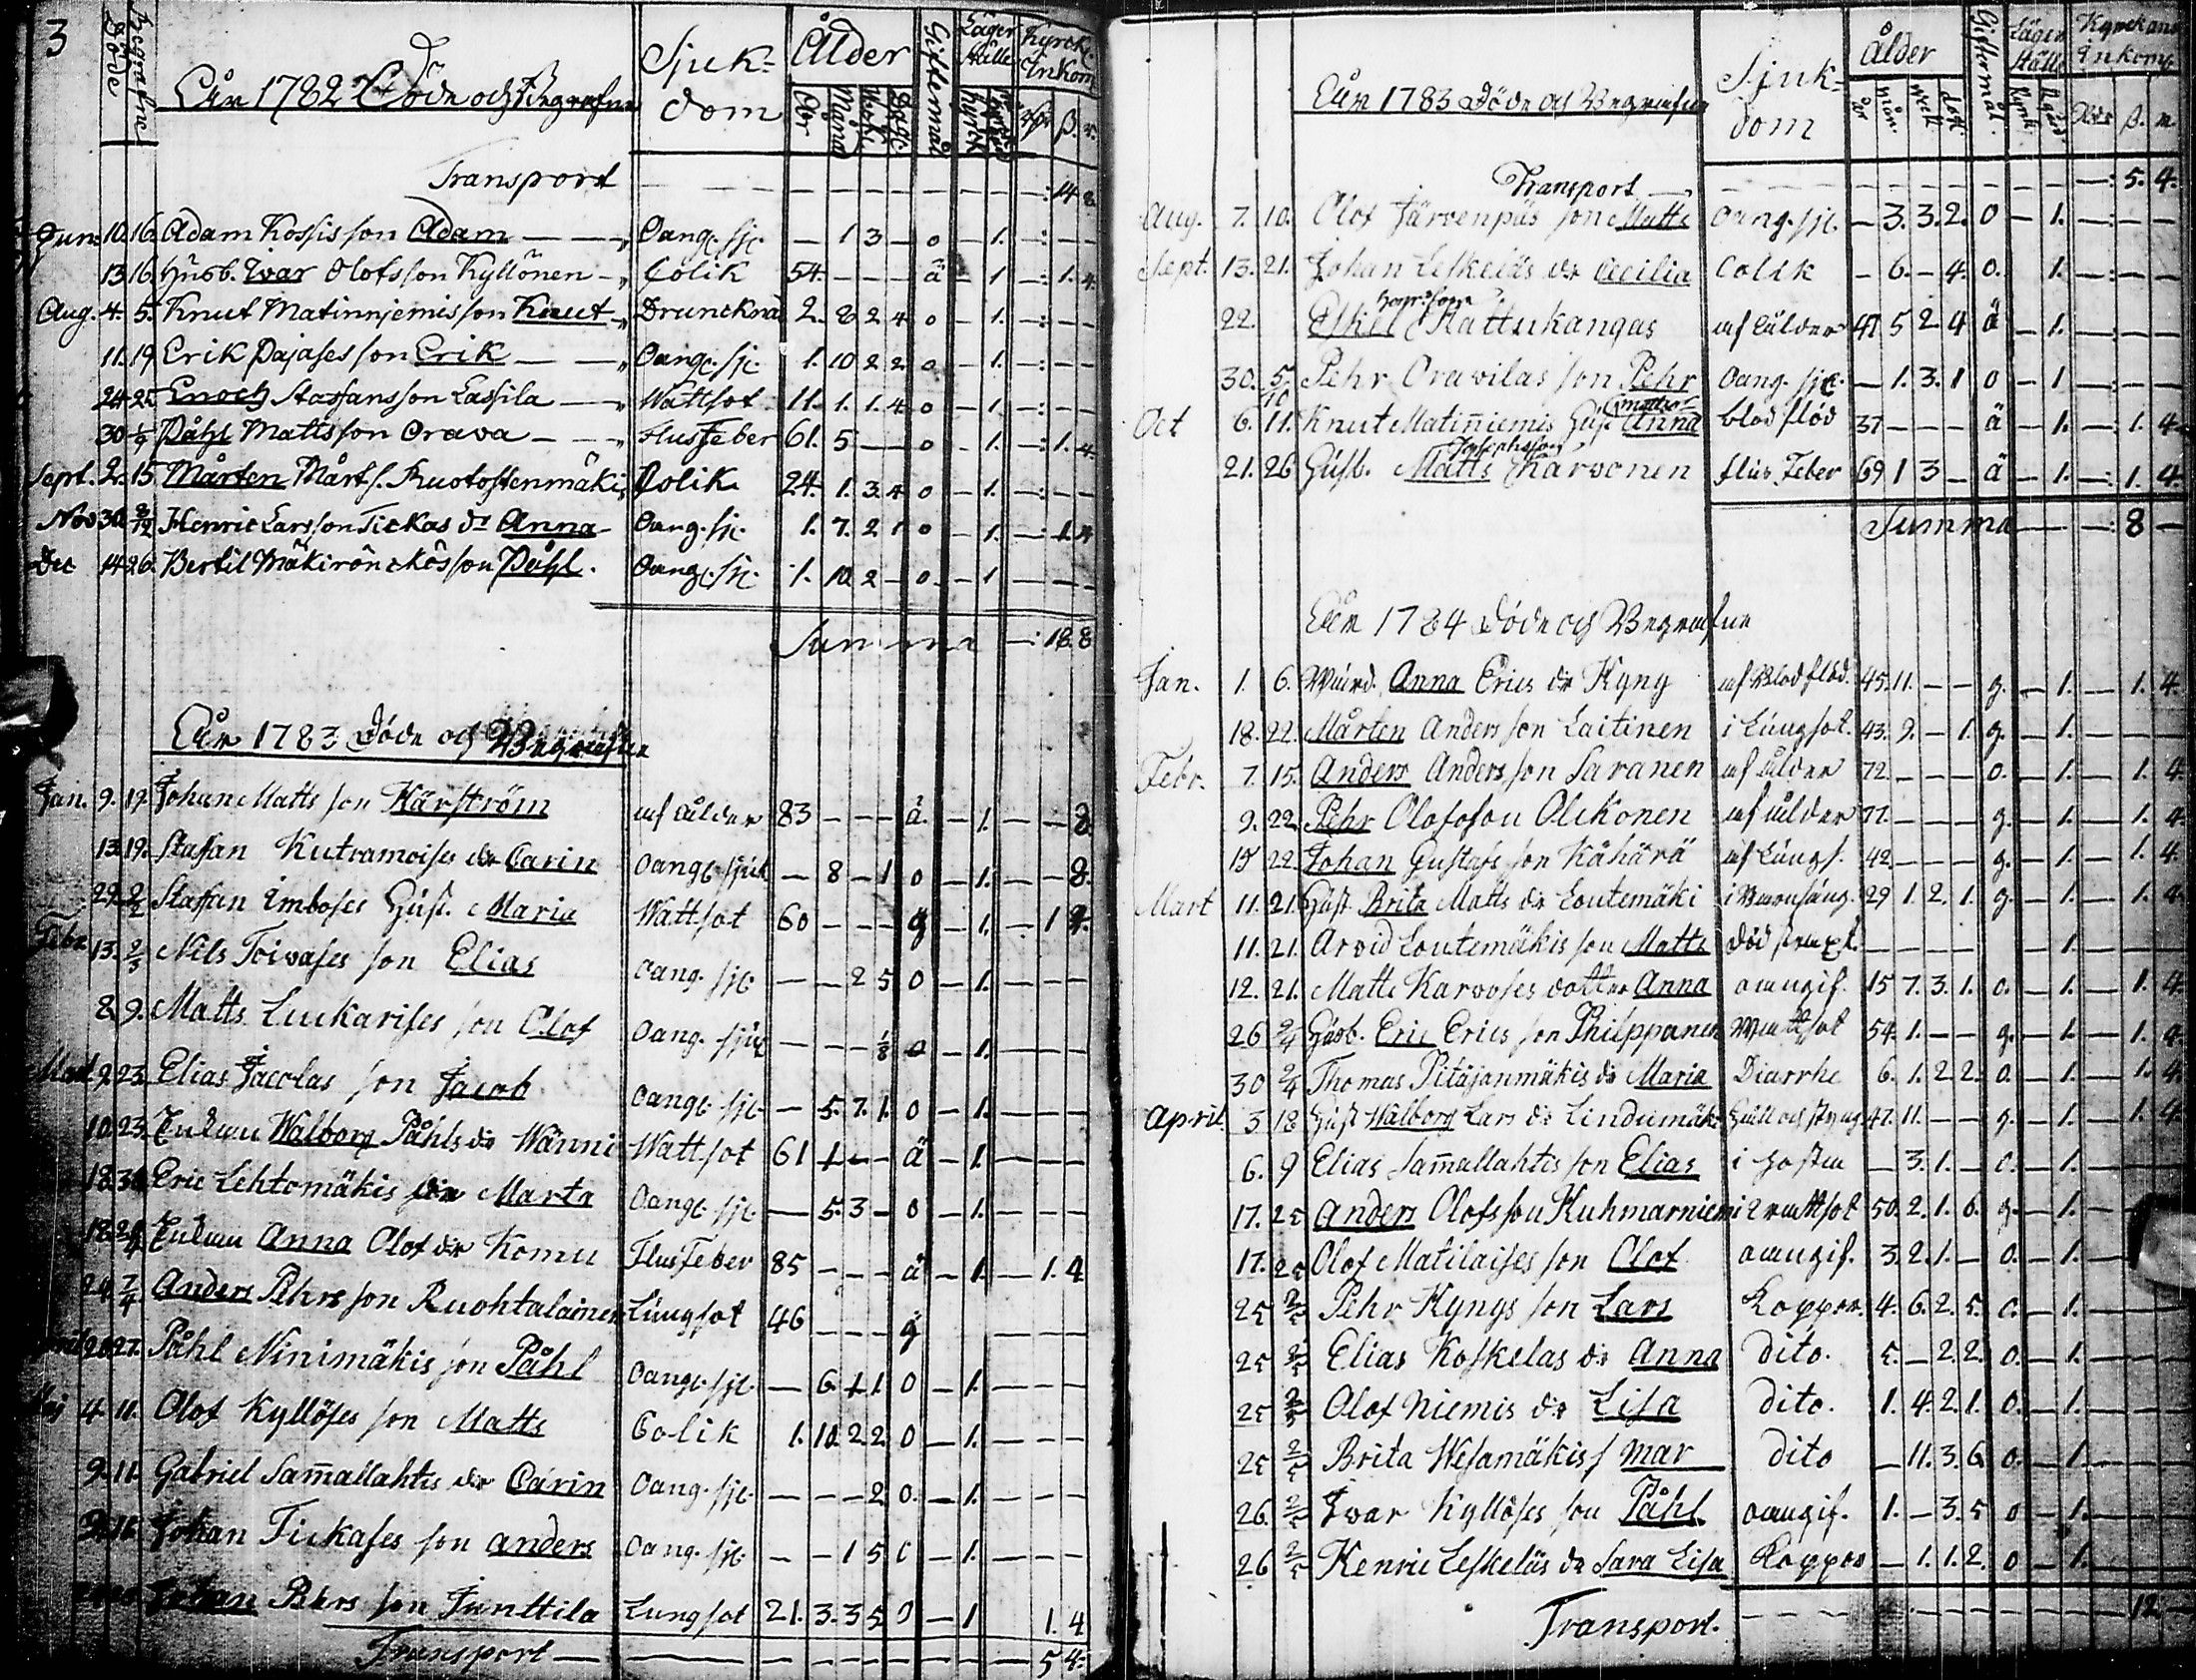 3
Döde
Begrafne
Åhr 1782 Döde och Begrafne
Sjuk-
dom
Ålder
Åhr Månad Dagr
Giftermål
Läger
ställe
Kyrck
Kyrck.
Inkom
Transport — — — — 14 8
Jun. 10. 16. Adam Kossis son Adam — Oang. sjc. — 1 3 — o — 1. — — —
13 16. Husb. Ivar Olofsson Kyllönen — Colik 54. — — — ä — 1 — 1. 4.
Aug. 4. 5. Knut Matinnjemis son Knut — Drunckna 2. 8 2 4 o — 1. — — —
11. 19 Erik Pajases son Erik — Oang. sjc. 1. 10 2 2. o — 1. — — —
24 25. Enoch Staffansson Lassila — Wattsot 11. 1. 1. 4 o — 1 — — —
30 1/9 Påhl Mattsson Orava — Flusfeber 61. 5 — — o — 1. — 1. 4.
Sept. 2. 15. Mårten Mårts. Ruotostenmäki Colik 24. 1. 3. 4 o — 1. — — —
Nov 30. 8/12 Henric Larsson Tickas dr Anna Oang. sjc. 1. 7. 2 1 o — 1. — 1. 4
Dec 14 26. Bertil Mäkirönckös son Påhl. Oang. sjc. 1. 10 2 — o — 1 — — —
Summa — 18. 8
Åhr 1783 Döde och Begrafne
Jan. 9. 19. Johan Matts son Härström af ålder 83 — — — ä. — 1. — — 8.
13. 19. Staffan Kutvamoises dr Carin Oang. sjuk — 8 — 1 o — 1. — — 8.
29. 2/2 Staffan Imboses Hust. Maria Wattsot 60 — — — g — 1. — 1 4.
Febr. 13. 2/3 Nils Toivases son Elias Oang. sjc. — — 2 5 o — 1. — — —
8. 9. Matts Luckarises son Olof Oang. sjuk — — — 1/8 o — 1. — — —
9. 23. Elias Jacolas son Jacob Oang. sjc. — 5. 7. 1. o — 1. — — —
10. 23. Enkan Walborg Påhls dr Wänni Wattsot 61 1 — — ä — 1. — — —
18. 30. Eric Lehtomäkis dr Marta Oang. sjc. — 5. 3 — o — 1. — — —
18. Enkan Anna Olof dr Komu Flusfeber 85 — — — ä — 1. — 1. 4
24. 7/4 Anders Pehrs son Ruohtalainen Lungsot 46 — — — g — — —
20. 27. Påhl Ninimäkis son Påhl Oang. sjc. — 6. 1. 1. o — 1. — — —
Maj 4. 11. Olof Kyllöses son Matts Colik 1. 10. 2 2. o — 1. — — —
9. 11. Gabriel Sam̄allahtis dr Carin Oang. sjc. — — — 2. o. — 1. — — —
Johan Tickases son anders Oang. sjc. — — 1 5 o — 1. — — —
Johan Pehrs son Junttila Lungsot 21. 3. 3 5 o — 1 1. 4
Transport — — — — 5 4.
Åhr 1783 Döde och Begrafne
Sjuk-
dom
Ålder
år mån. wek. dag
Giftermål.
Läger
ställe
Kyrk.
Kyrckans
Inkomst
Rdr ß. rs.
Transport — — — — 5. 4.
Aug. 7. 10. Olof Järvenpäs son Matts Oang. sjc. — 3. 3. 2. o — 1. — — —
Sept. 13. 21. Johan Leskeläs dr Cecilia Colik — 6. — 4. o. 1. — — —
22. Eskil Rattukangas af ålder 47 5 2 4 ä — 1. — — —
30. 5/10 Pehr Oravilas son Pehr Oang. sjc. — 1. 3. 1 o — 1 — — —
Oct 6. 11. Knut Matin̄iemis Hust. Anna blodflöd 37 — — — ä — 1. — 1. 4.
Josephsson
21. 26 Husb. Matts Karvonen flus Feber 69 1 3 — ä — 1. — 1. 4.
Summa — — 8 —
Åhr 1784 Döde och Begrafne
Jan. 1. 6. Anna Erics dr Kyny af Blodflöd. 45. 11. — — g. — 1. — 1. 4.
18. 22. Mårten Anders son Laitinen i Lungsot. 43. 9. — 1. g. — 1. — — —
Febr. 7. 15. Anders Anders son Saranen af ålder 72. — — — o. — 1. — 1. 4.
9. 22. Pehr Olofsson Olikonen af ålder 77. — — — g. — 1. — 1. 4.
15 22. Johan Gustafs son Kähärä af Lungs. 42. — — — g. — 1. — 1. 4.
Mart 11. 21. Hust. Brita Matts dr Loutemäki i Barnsäng. 29 1. 2. 1. g. — 1. — 1. 4.
11. 21. Arvid Loutemäkis son Matts dödfödt. — — — — 1. — — —
12. 21. Matts Karvoses dotter Anna oangif. 15 7. 3. 1. o. — 1. — 1. 4.
26 2/4 Husb. Eric Erics son Philppanen Wattsot 54. 1. — — g. — 1. — 1. 4.
30 2/4 Thomas Pitäjänmäkis dr Maria Diarrhe 6. 1. 2 2. o. — 1. — 1. 4.
April. 3 18 Hust Walborg Lars dr Lindumäki Håll och styng 47. 11. — — g. — 1. — 1. 4.
6. 9 Elias Sam̄allahtis son Elias i Hosta — 3. 1. — o. — 1. — — —
17. 25 Anders Olofsson Kuhmarniemi Wattsot 50. 2. 1. 6. g. — 1. —
17. 25 Olof Matilaises son Olof oangif. 3. 2. 1. — o. — 1. —
25 2/5 Pehr Kyngs son Lars Koppor. 4. 6. 2. 5. o. — 1. — — —
25 2/5 Elias Koskelas dr Anna dito. 5. — 2. 2. o. — 1. — — —
25 2/5 Olof Niemis dr Lisa dito. 1. 4. 2. 1. o. — 1. — — —
25 2/5 Brita Wesamäkis s mar dito — 11. 3. 6. o. — 1. — — —
26. 2/5 Ivar Kyllöses son Påhl oangif. 1. — 3. 5 o — 1. — — —
26 2/5 Henric Leskeläs dr Sara Lisa Koppor — 1. 1. 2. o — 1. — — —
Transport. — — — — 12 —